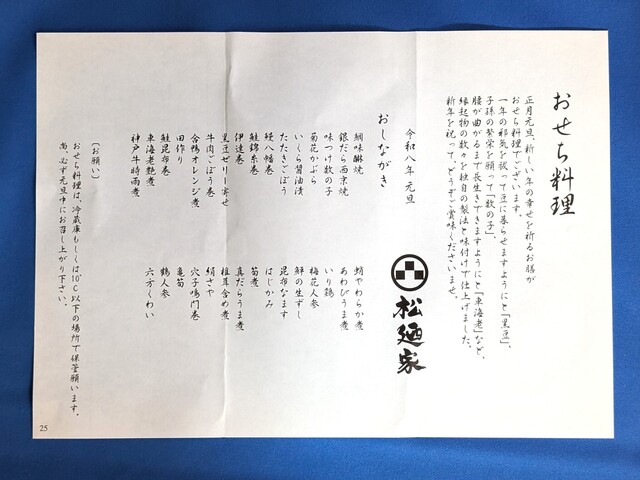 おせち料理
正月元旦、新しい年の幸せを祈るお膳が
おせち料理でございます。
一年の邪気を祓って豆に暮らせますようにと「黒豆」、
子孫の繁栄を願って「数の子」、
腰が曲がるまで長生きできますようにと「車海老」など、
縁起物の数々を独自の製法と味付けで仕上げました。
新年を祝って、どうぞご賞味くださいませ。
令和八年 元旦
松廼家
おしながき
鯛味醂焼
銀だら西京焼
味つけ数の子
菊花かぶら
いくら醤油漬
たたきごぼう
軽八幡巻
鮭錦糸巻
伊達巻
黒豆ゼリー寄せ
牛肉ごぼう巻
合鴨オレンジ煮
田作り
鮭昆布巻
車海老艶煮
神戸牛時雨煮
蛸やわらか煮
あわびうま煮
いり鶏
梅花人参
鮃の生ずし
昆布なます
はじかみ
筍煮
真だらうま煮
椎茸含め煮
絹さや
穴子鳴門巻
亀筍
鶴人参
六方くわい
(お願い)
おせち料理は、冷蔵庫もしくは10℃以下の場所で保管願います。
尚、必ず元旦中にお召し上がり下さい。
25